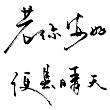 若你安好
便是晴天